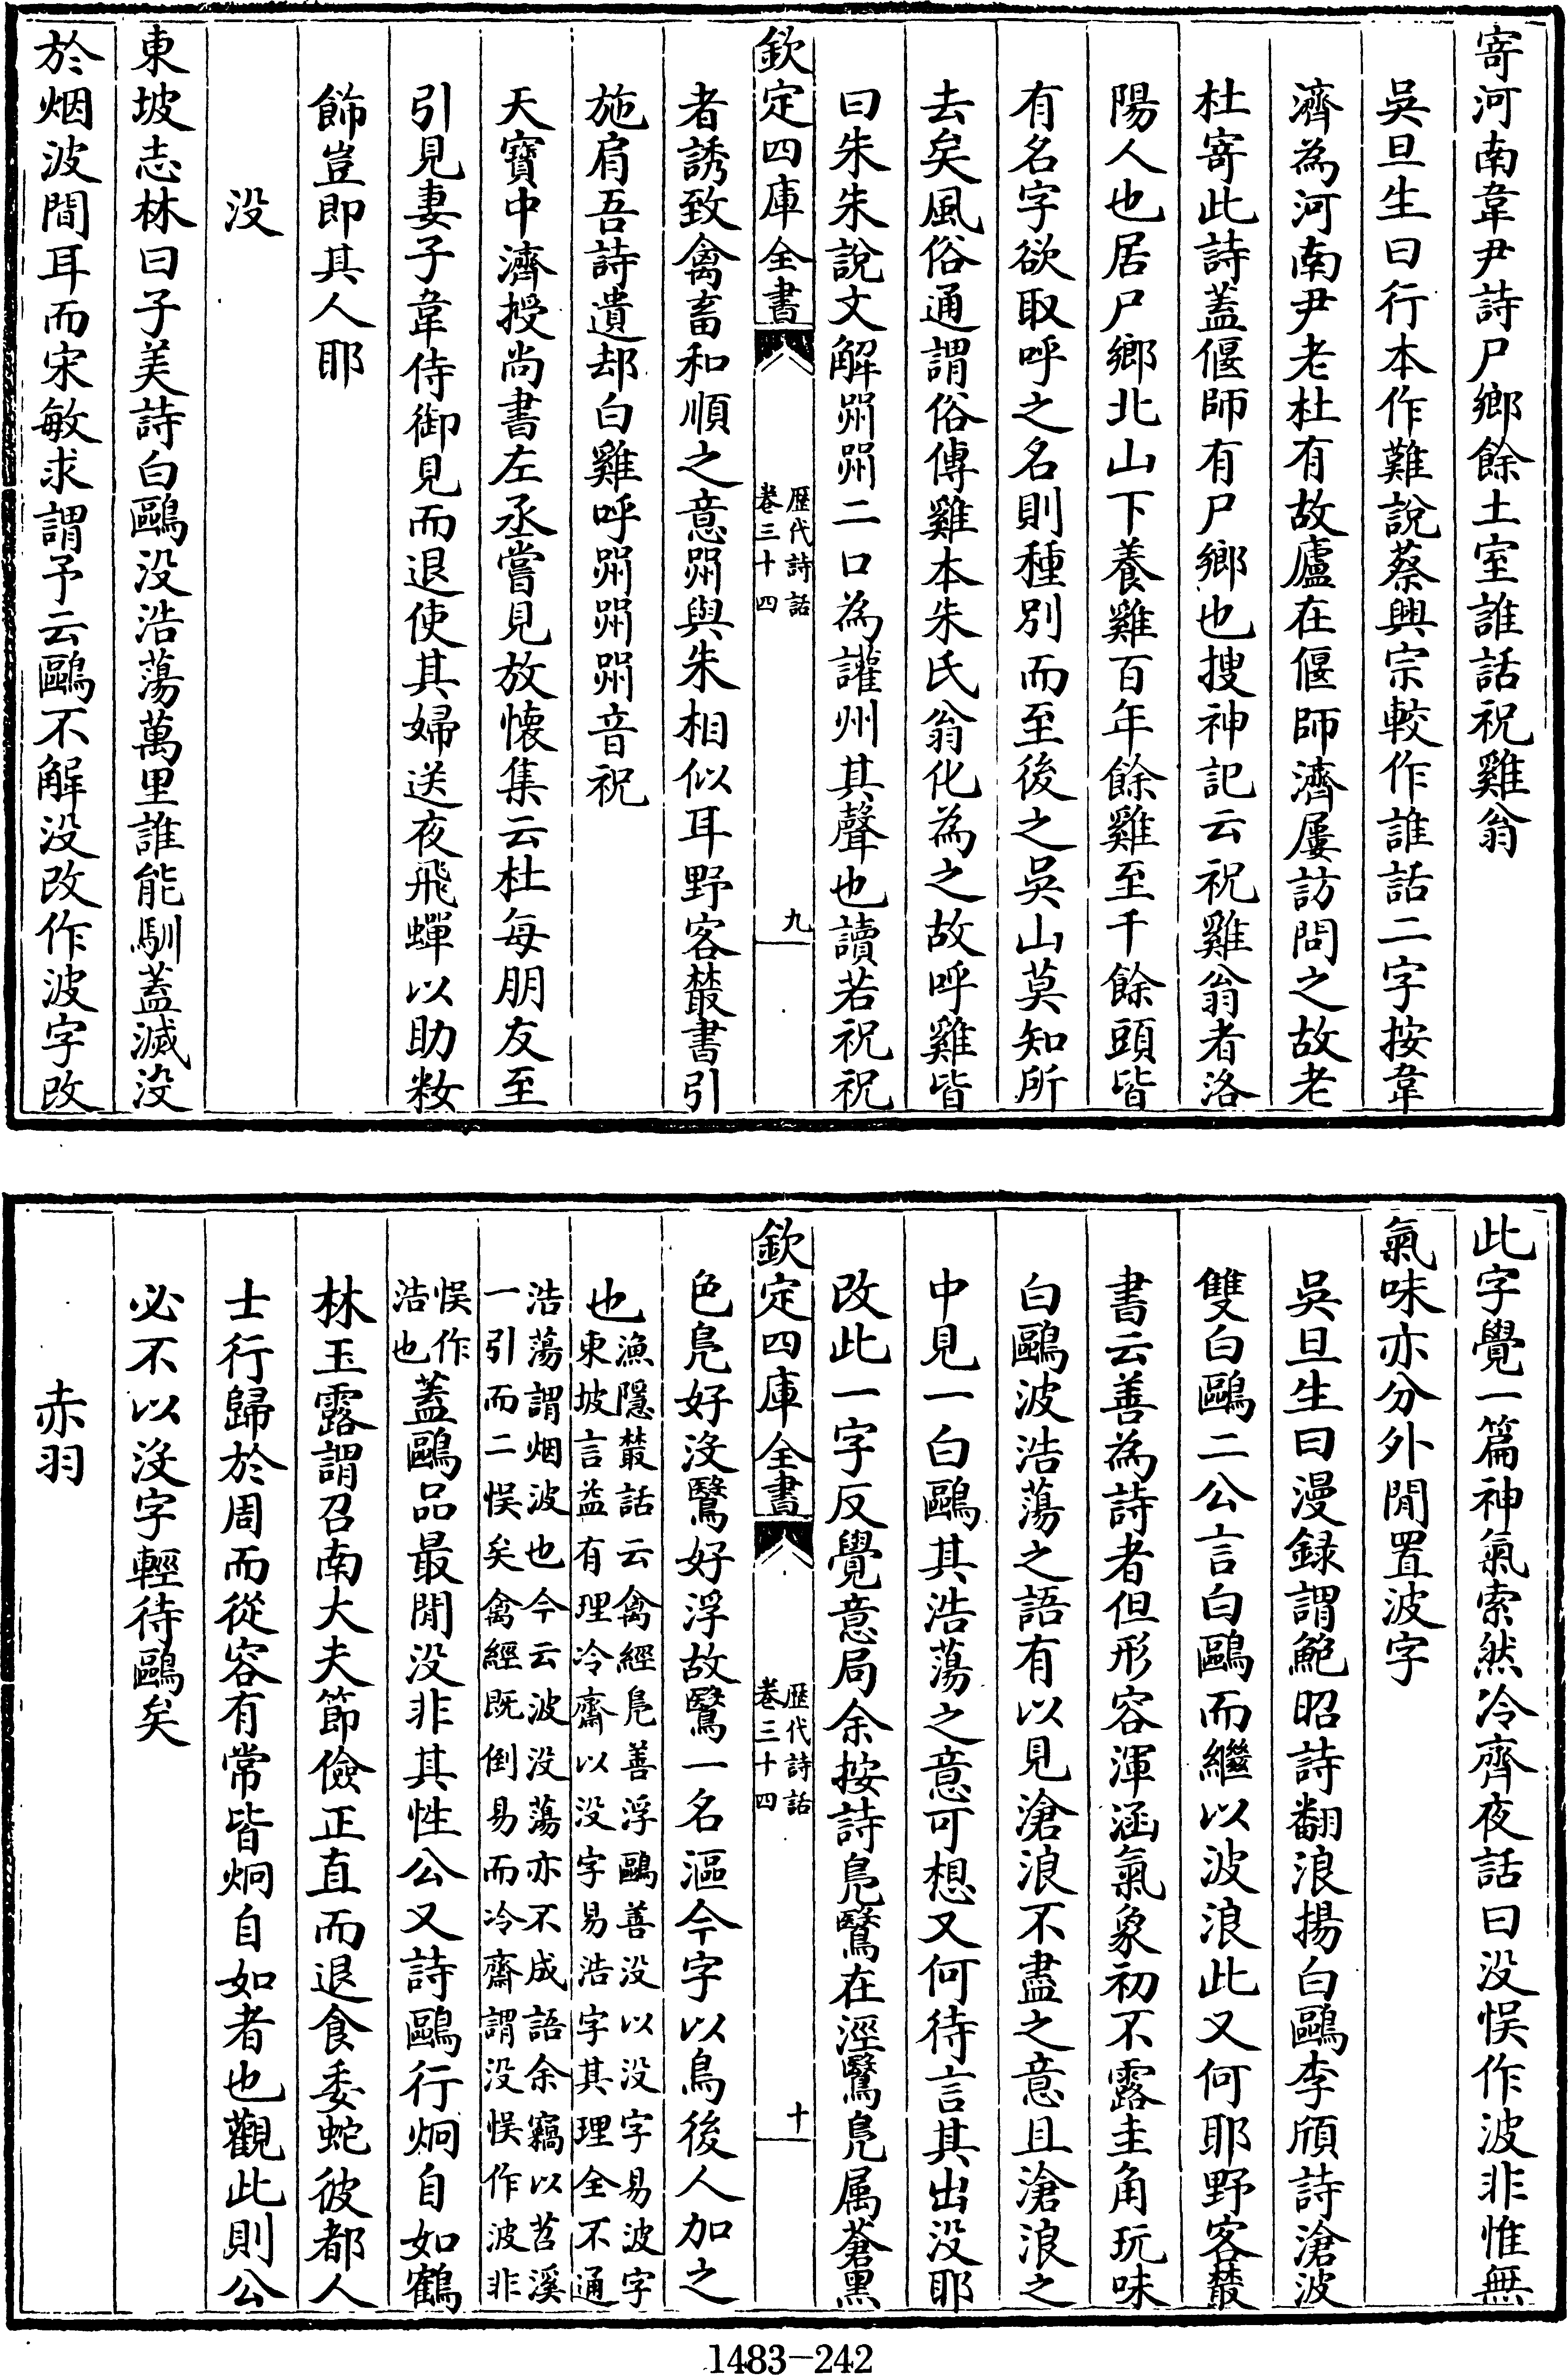 寄河南韋尹詩尸鄉餘土室誰話祝雞翁
吳旦生曰行本作難說蔡興宗較作誰話二字按韋
濟為河南尹老杜有故廬在偃師濟屢訪問之故老
杜寄此詩蓋偃師有尸鄉也搜神記云祝雞翁者洛
陽人也居尸鄉北山下養雞百年餘雞至千餘頭皆
有名字欲取呼之名則種別而至後之吳山莫知所
去矣風俗通謂俗傳雞本朱氏翁化為之故呼雞皆
曰朱朱說文解喌喌二口為讙州其聲也讀若祝祝
欽定四庫全書
歷代詩話
卷三十四
九
者誘致禽畜和順之意喌與朱相似耳野客叢書引
施肩吾詩遺却白雞呼喌喌喌音祝
天寶中濟授尚書左丞嘗見放懷集云杜每朋友至
引見妻子韋侍御見而退使其婦送夜飛蟬以助粧
飾豈即其人耶
没
東坡志林曰子美詩白鷗没浩蕩萬里誰能馴蓋滅没
於烟波間耳而宋敏求謂予云鷗不解没改作波字改
此字覺一篇神氣索然冷齊夜話曰没悞作波非惟無
氣味亦分外閒置波字
吳旦生曰漫録謂鮑昭詩翻浪揚白鷗李頎詩滄波
雙白鷗二公言白鷗而繼以波浪此又何耶野客叢
書云善為詩者但形容渾涵氣象初不露圭角玩味
白鷗波浩蕩之語有以見滄浪不盡之意且滄浪之
中見一白鷗其浩蕩之意可想又何待言其出没耶
改此一字反覺意局余按詩鳧鷖在涇鷖鳧属蒼黑
欽定四庫全書
歷代詩話
卷三十四
十
色鳧好没鷖好浮故鷖一名漚今字以鳥後人加之
也
漁隱叢話云禽經鳧善浮鷗善没以没字易波字
東坡言益有理冷齋以没字易浩字其理全不通
浩蕩謂烟波也今云波没蕩亦不成語余竊以苕溪
一引而二悞矣禽經既倒易而冷齋謂没悞作波非
悞作
浩也
蓋鷗品最閒没非其性公又詩鷗行炯自如鶴
林玉露謂召南大夫節儉正直而退食委蛇彼都人
士行歸於周而從容有常皆炯自如者也觀此則公
必不以没字輕待鷗矣
赤羽
1483-242